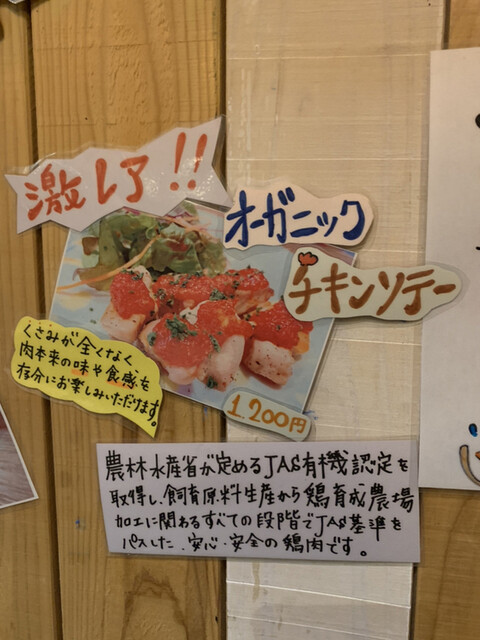 激レア!!
オーガニック
チキンソテー
くさみが全くなく
肉本来の味や食感を
存分にお楽しみいただけます。
1200円
農林水産省が定めるJAS有機認定を
取得し、飼育原料生産から鶏育成農場
加工に関わるすべての段階でJAS基準を
パスした、安心・安全の鶏肉です。